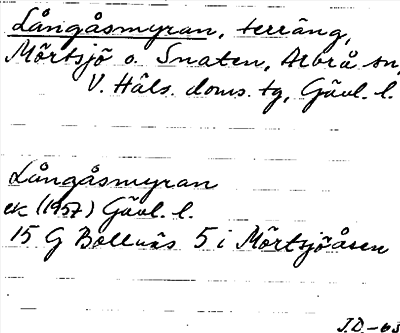 Långåsmyran, terräng,
Mörtsjö o. Snaten, Arbrå sn,
V. Häls. doms. tg, Gävl. l.
Långåsmyran
ek (1957) Gävl. l.
15 G Bollnäs 5 i Mörtsjöåsen
J.D. -63